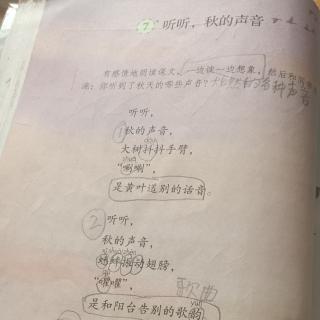 7 听听，秋的声音
有感情地朗读课文，一边读一边想象，然后和同学交
流：你听到了秋天的哪些声音？大自然的各种声音
听听，
①秋的声音，
大树抖抖手臂，
“唰唰”，
是黄叶道别的话音。
② 听听，
秋的声音，
蟋蟀振动翅膀，
“㘗㘗”，
歌曲
是和阳台告别的歌韵。